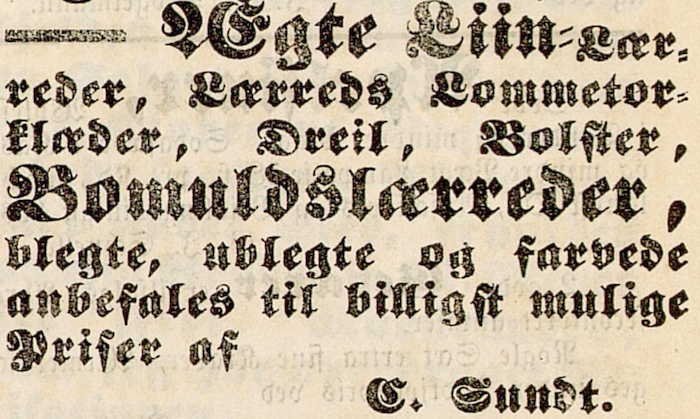 Ægte Liin-Lær-
reder, Lærreds Lommetor-
klæder, Dreil, Bolster,
Bomuldslærreder,
blegte, ublegte og farvede
anbefales til billigst mulige
Priser af
C. Sundt.